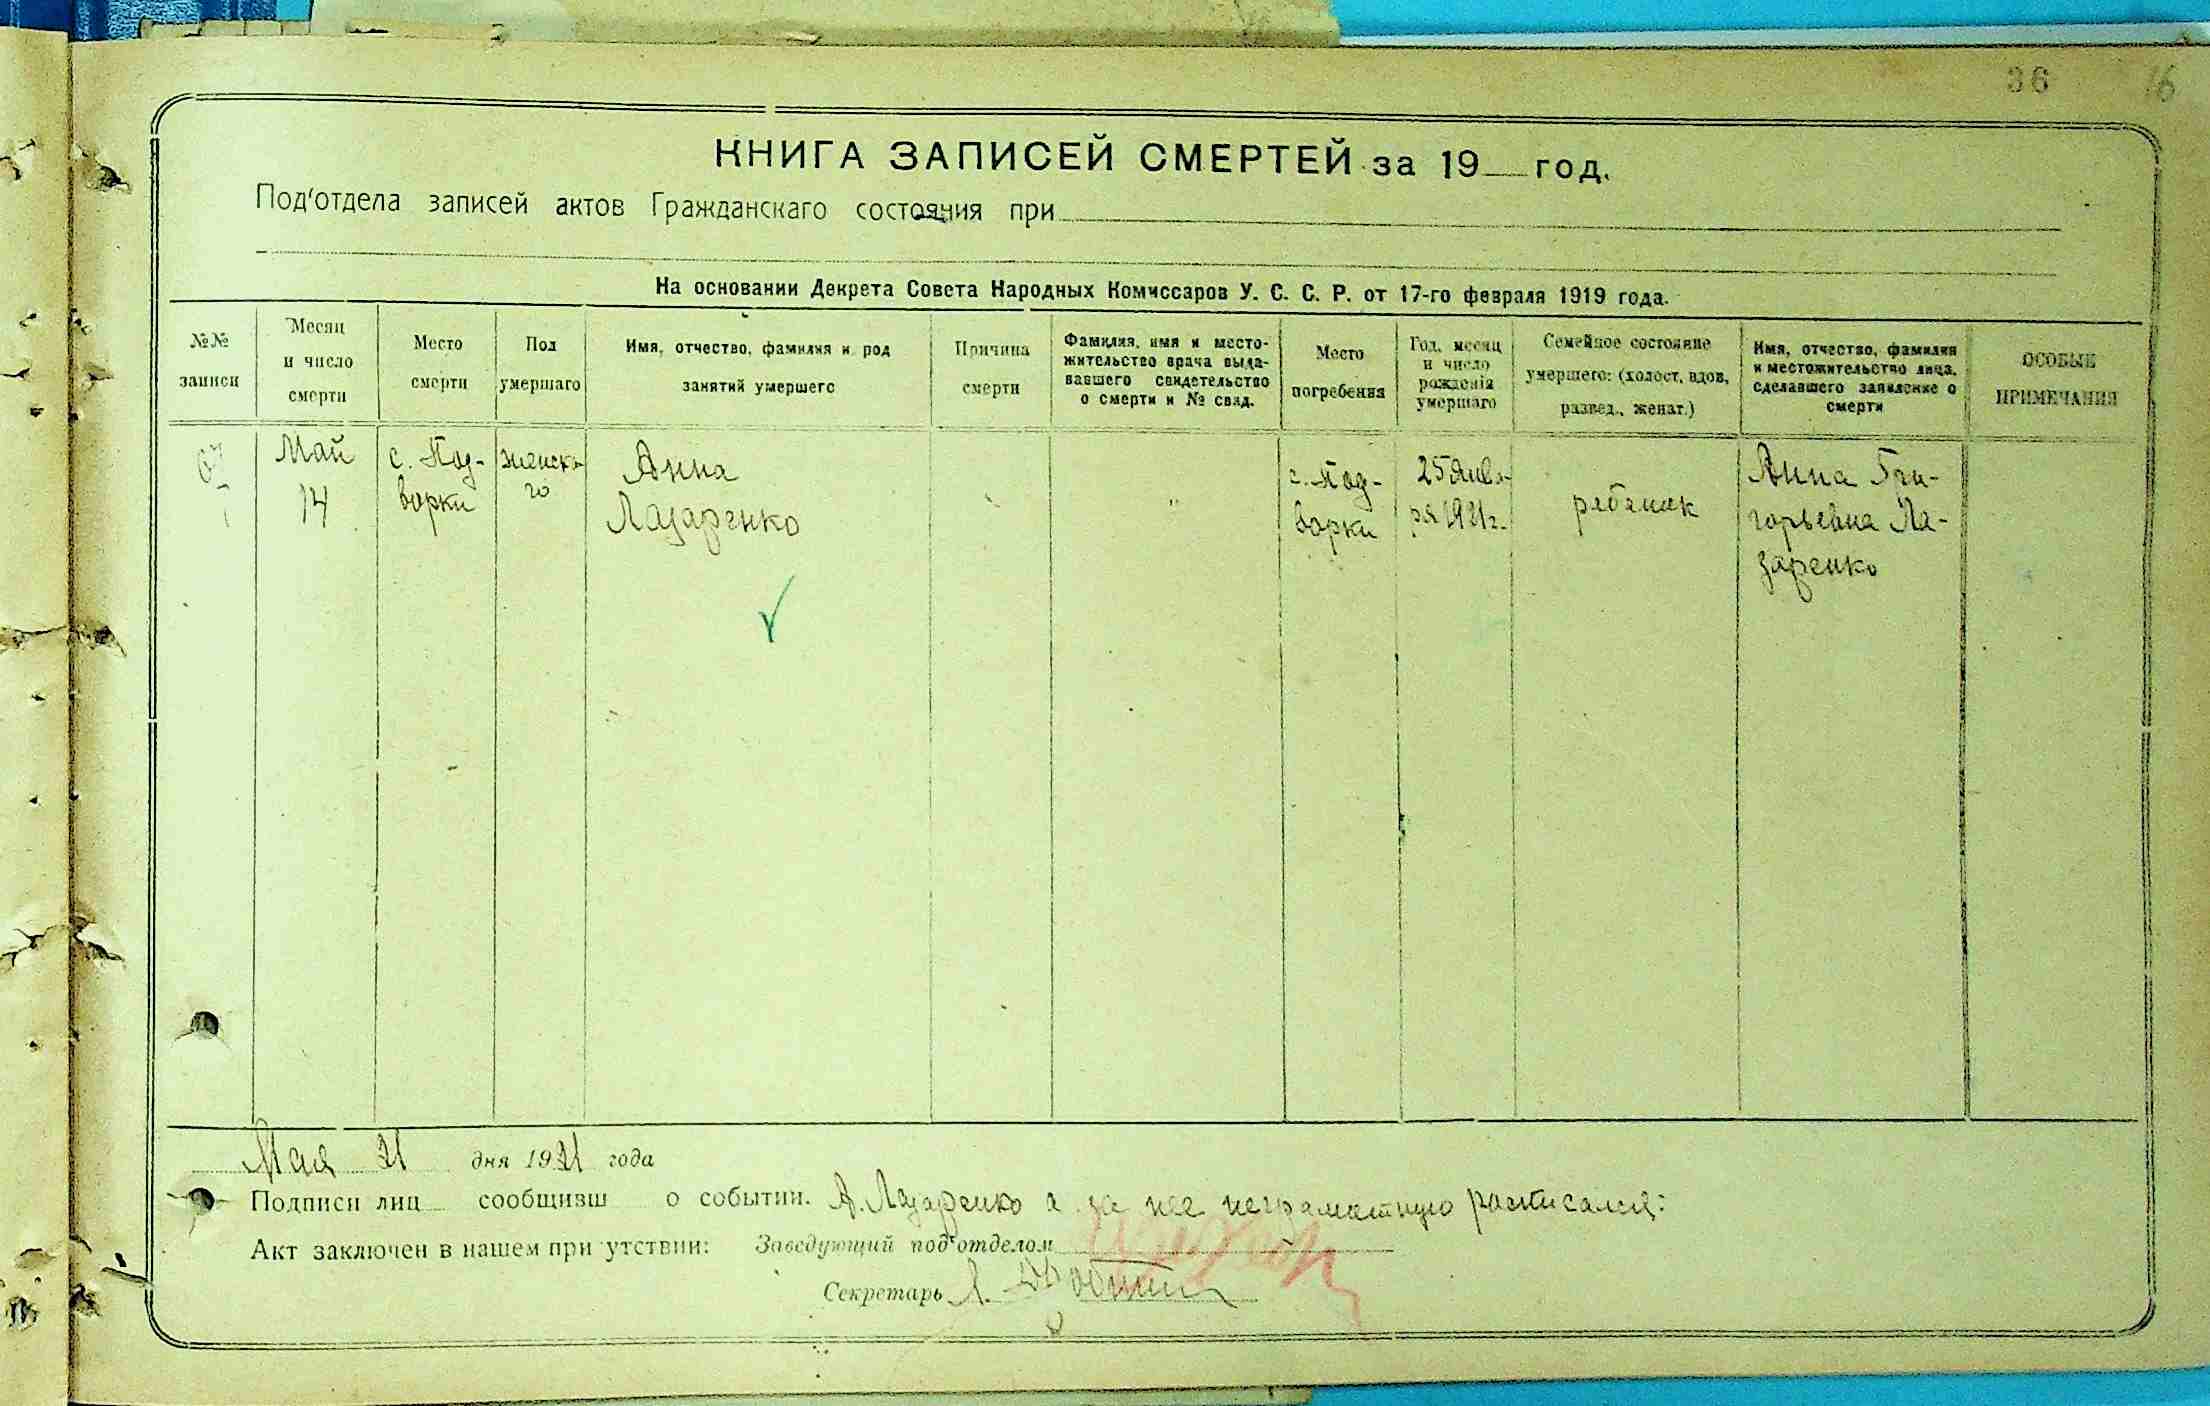 36 16
КНИГА ЗАПИСЕЙ СМЕРТЕЙ за 19 год.
Под'отдела записей актов Гражданскаго состояния при
На основании Декрета Совета Народных Комиссаров У. С. С. Р. от 17-го февраля 1919 года.
№№
записи
Месяц
и число
смерти
Место
смерти
Пол
умершаго
Имя, отчество, фамилия и род
занятий умершего
Причина
смерти
Фамилия, имя и место-
жительство врача выда-
вавшего свидетельство
о смерти и № свид.
Место
погребения
Год, месяц
и число
рождения
умершаго
Семейное состояние
умершего: (холост, вдов,
развед., женат.)
Имя, отчество, фамилия
и местожительство лица,
сделавшего заявление о
смерти
ОСОБЫЕ
ПРИМЕЧАНИЯ
Май
14
с. Под-
ворки
женско-
го
Анна
Лазаренко
"
с. Под-
ворки
25 Янва-
ря 1921 г.
ребенок
Анна Гри-
горьевна Ла-
заренко
Мая 21 дня 1921 года
Подписи лиц сообщивш о событии. А. Лазаренко а за нее неграмотную расписался:
Акт заключен в нашем при утствии: Заведующий под'отделом
Секретарь